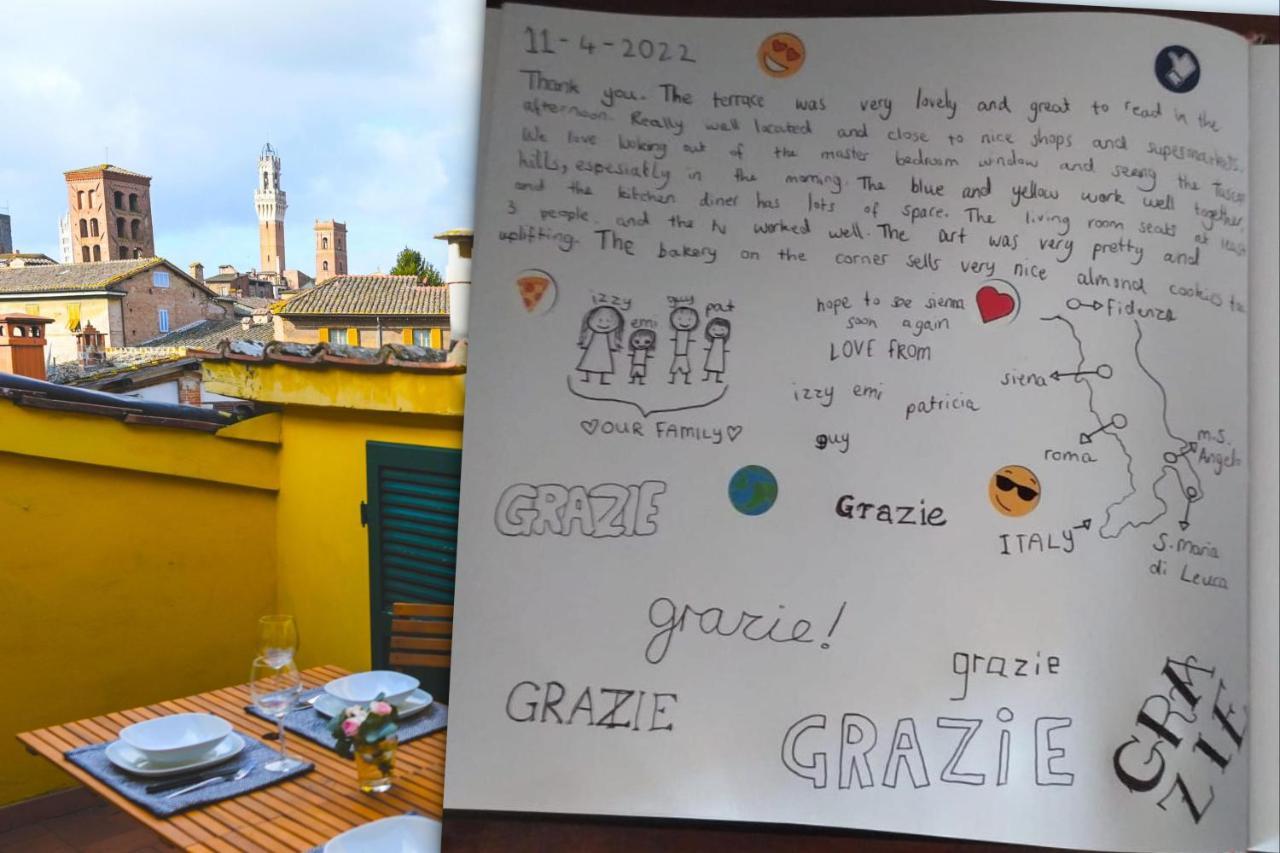 11-4-2022
Thank you. The terrace was very lovely and great to read in the
afternoon. Really well located and close to nice shops and supermarkets.
We love looking out of the master bedroom window and seeing the Tuscan
hills, espesially in the morning. The blue and yellow work well together,
and the kitchen diner has lots of space. The living room seats at least
3 people. and the tv worked well. The art was very pretty and
uplifting. The bakery on the corner sells very nice almond cookies too
izzy
emi
guy
pat
♡OUR FAMILY♡
hope to see siena
soon again
LOVE FROM
izzy emi patricia
guy
Fidenza
siena
roma
m.S.
Angelo
ITALY
S. Maria
di Leuca
GRAZIE
Grazie
grazie!
grazie
GRAZIE
GRAZiE
GRA
ZIE